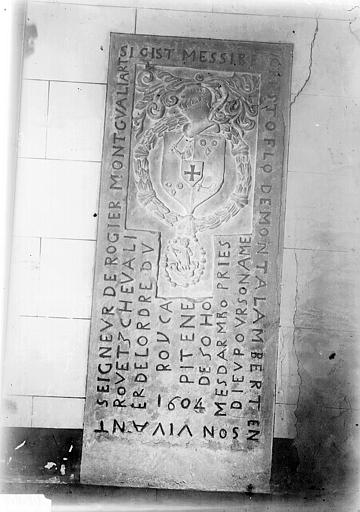 SI GIST MESSIRE
CRISTOFLO DE MONTALAMBERT EN
SON VIVANT
SEIGNEVR DE ROGIER MONTGVALIARTS
ROVETS CHEVALI
ER DE L ORDRE DV
ROV CA
PITENE
DE SO HO
MES DARM BO PRIES
DIEV POVR SON AME
1604